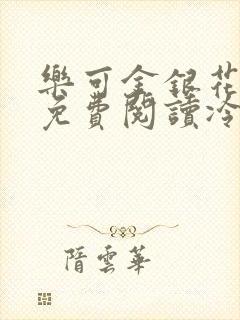 樂可金銀花
免費閱讀冷
隋雲華